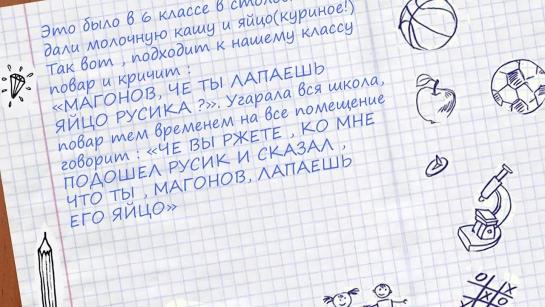 Это было в 6 классе в
дали молочную кашу и яйцо(куриное!)
Так вот , подходит к нашему классу
повар и кричит :
«МАГОНОВ, ЧЕ ТЫ ЛАПАЕШЬ
ЯЙЦО РУСИКА ?». Угарала вся школа,
повар тем временем на все помещение
говорит : «ЧЕ ВЫ РЖЕТЕ , КО МНЕ
ПОДОШЕЛ РУСИК И СКАЗАЛ ,
ЧТО ТЫ , МАГОНОВ, ЛАПАЕШЬ
ЕГО ЯЙЦО»